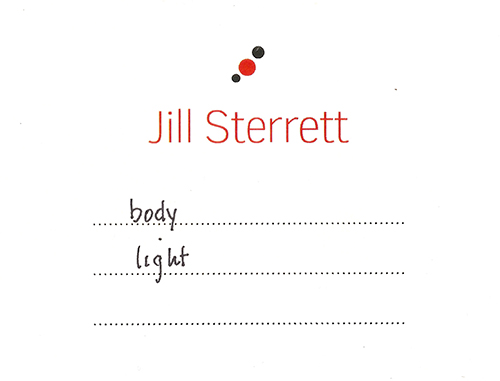 Jill Sterrett
body
light